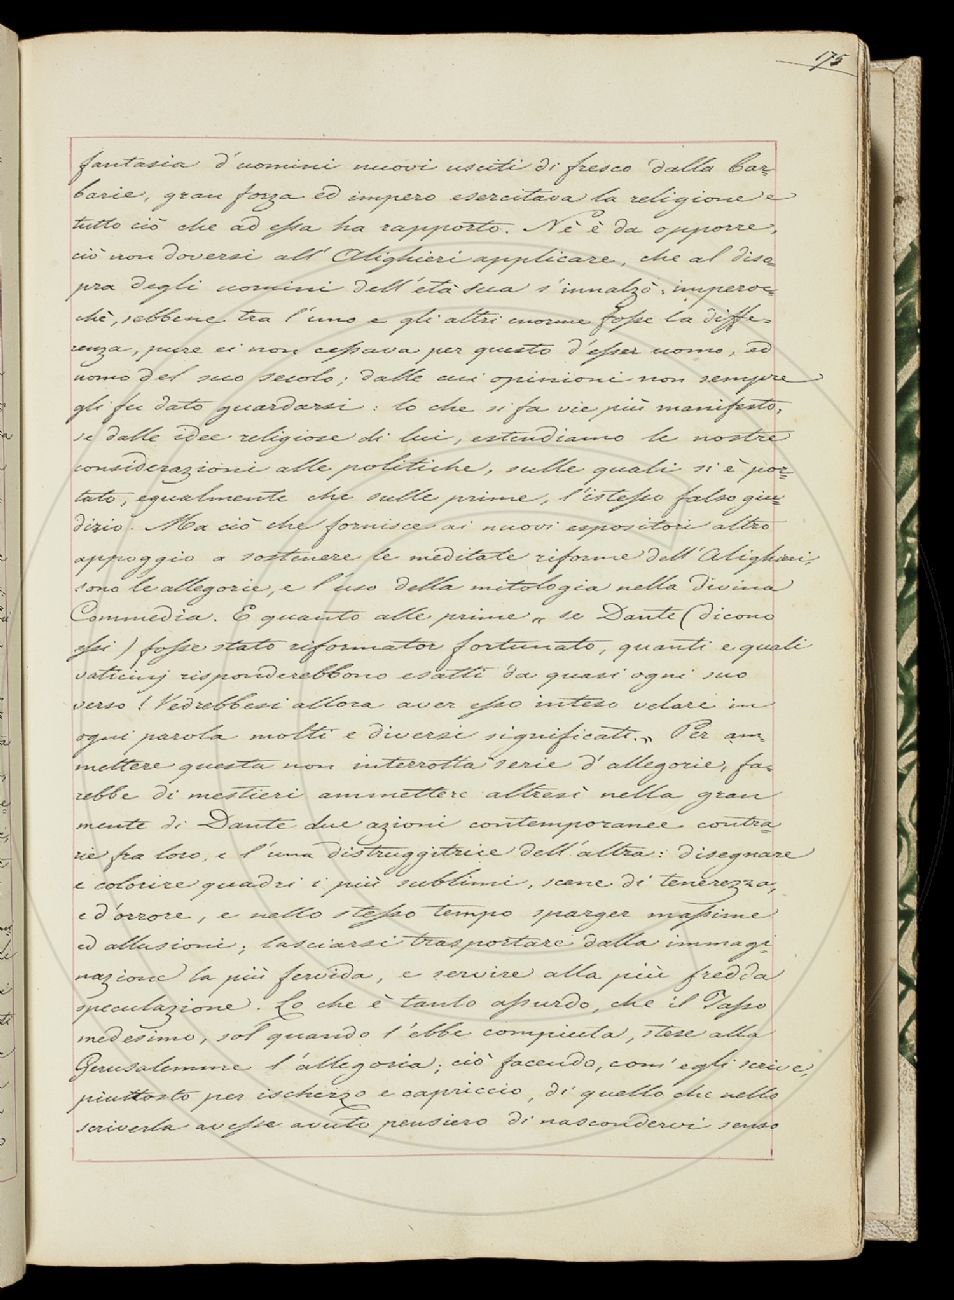 175
fantasia d'uomini nuovi usciti di fresco dalla bar-
barie, gran forza ed impero esercitava la religione e
tutto ciò che ad essa ha rapporto. Nè è da opporre,
ciò non doversi all'Alighieri applicare, che al diso-
pra degli uomini dell'età sua s'innalzò: imperoc-
chè, sebbene tra l'uno e gli altri enorme fosse la diffe-
renza, pure ei non cessava per questo d'esser uomo, ed
uomo del suo secolo; dalle cui opinioni non sempre
gli fu dato guardarsi: lo che si fa vie più manifesto,
se dalle idee religiose di lui, estendiamo le nostre
considerazioni alle politiche, sulle quali si è por-
tato, egualmente che sulle prime, l'istesso falso giu-
dizio. Ma ciò che fornisce ai nuovi espositori altro
appoggio a sostenere le meditate riforme dell'Alighieri,
sono le allegorie, e l'uso della mitologia nella divina
Commedia. E quanto alle prime „ se Dante (dicono
essi) fosse stato riformator fortunato, quanti e quali
vaticinj risponderebbono esatti da quasi ogni suo
verso! Vedrebbesi allora aver esso inteso velare in
ogni parola molti e diversi significati. „ Per am-
mettere questa non interrotta serie d'allegorie, fa-
rebbe di mestieri ammettere altresì nella gran
mente di Dante due azioni contemporanee contra-
rie fra loro, e l'una distruggitrice dell'altra: disegnare
e colorire quadri i più sublimi, scene di tenerezza,
e d'orrore, e nello stesso tempo sparger massime
ed allusioni; lasciarsi trasportare dalla immagi-
nazione la più fervida, e servire alla più fredda
speculazione. Lo che è tanto assurdo, che il Tasso
medesimo, sol quando l'ebbe compiuta, stese alla
Gerusalemme l'allegoria; ciò facendo, com'egli scrive,
piuttosto per ischerzo e capriccio, di quello che nello
scriverla avesse avuto pensiero di nascondervi senso